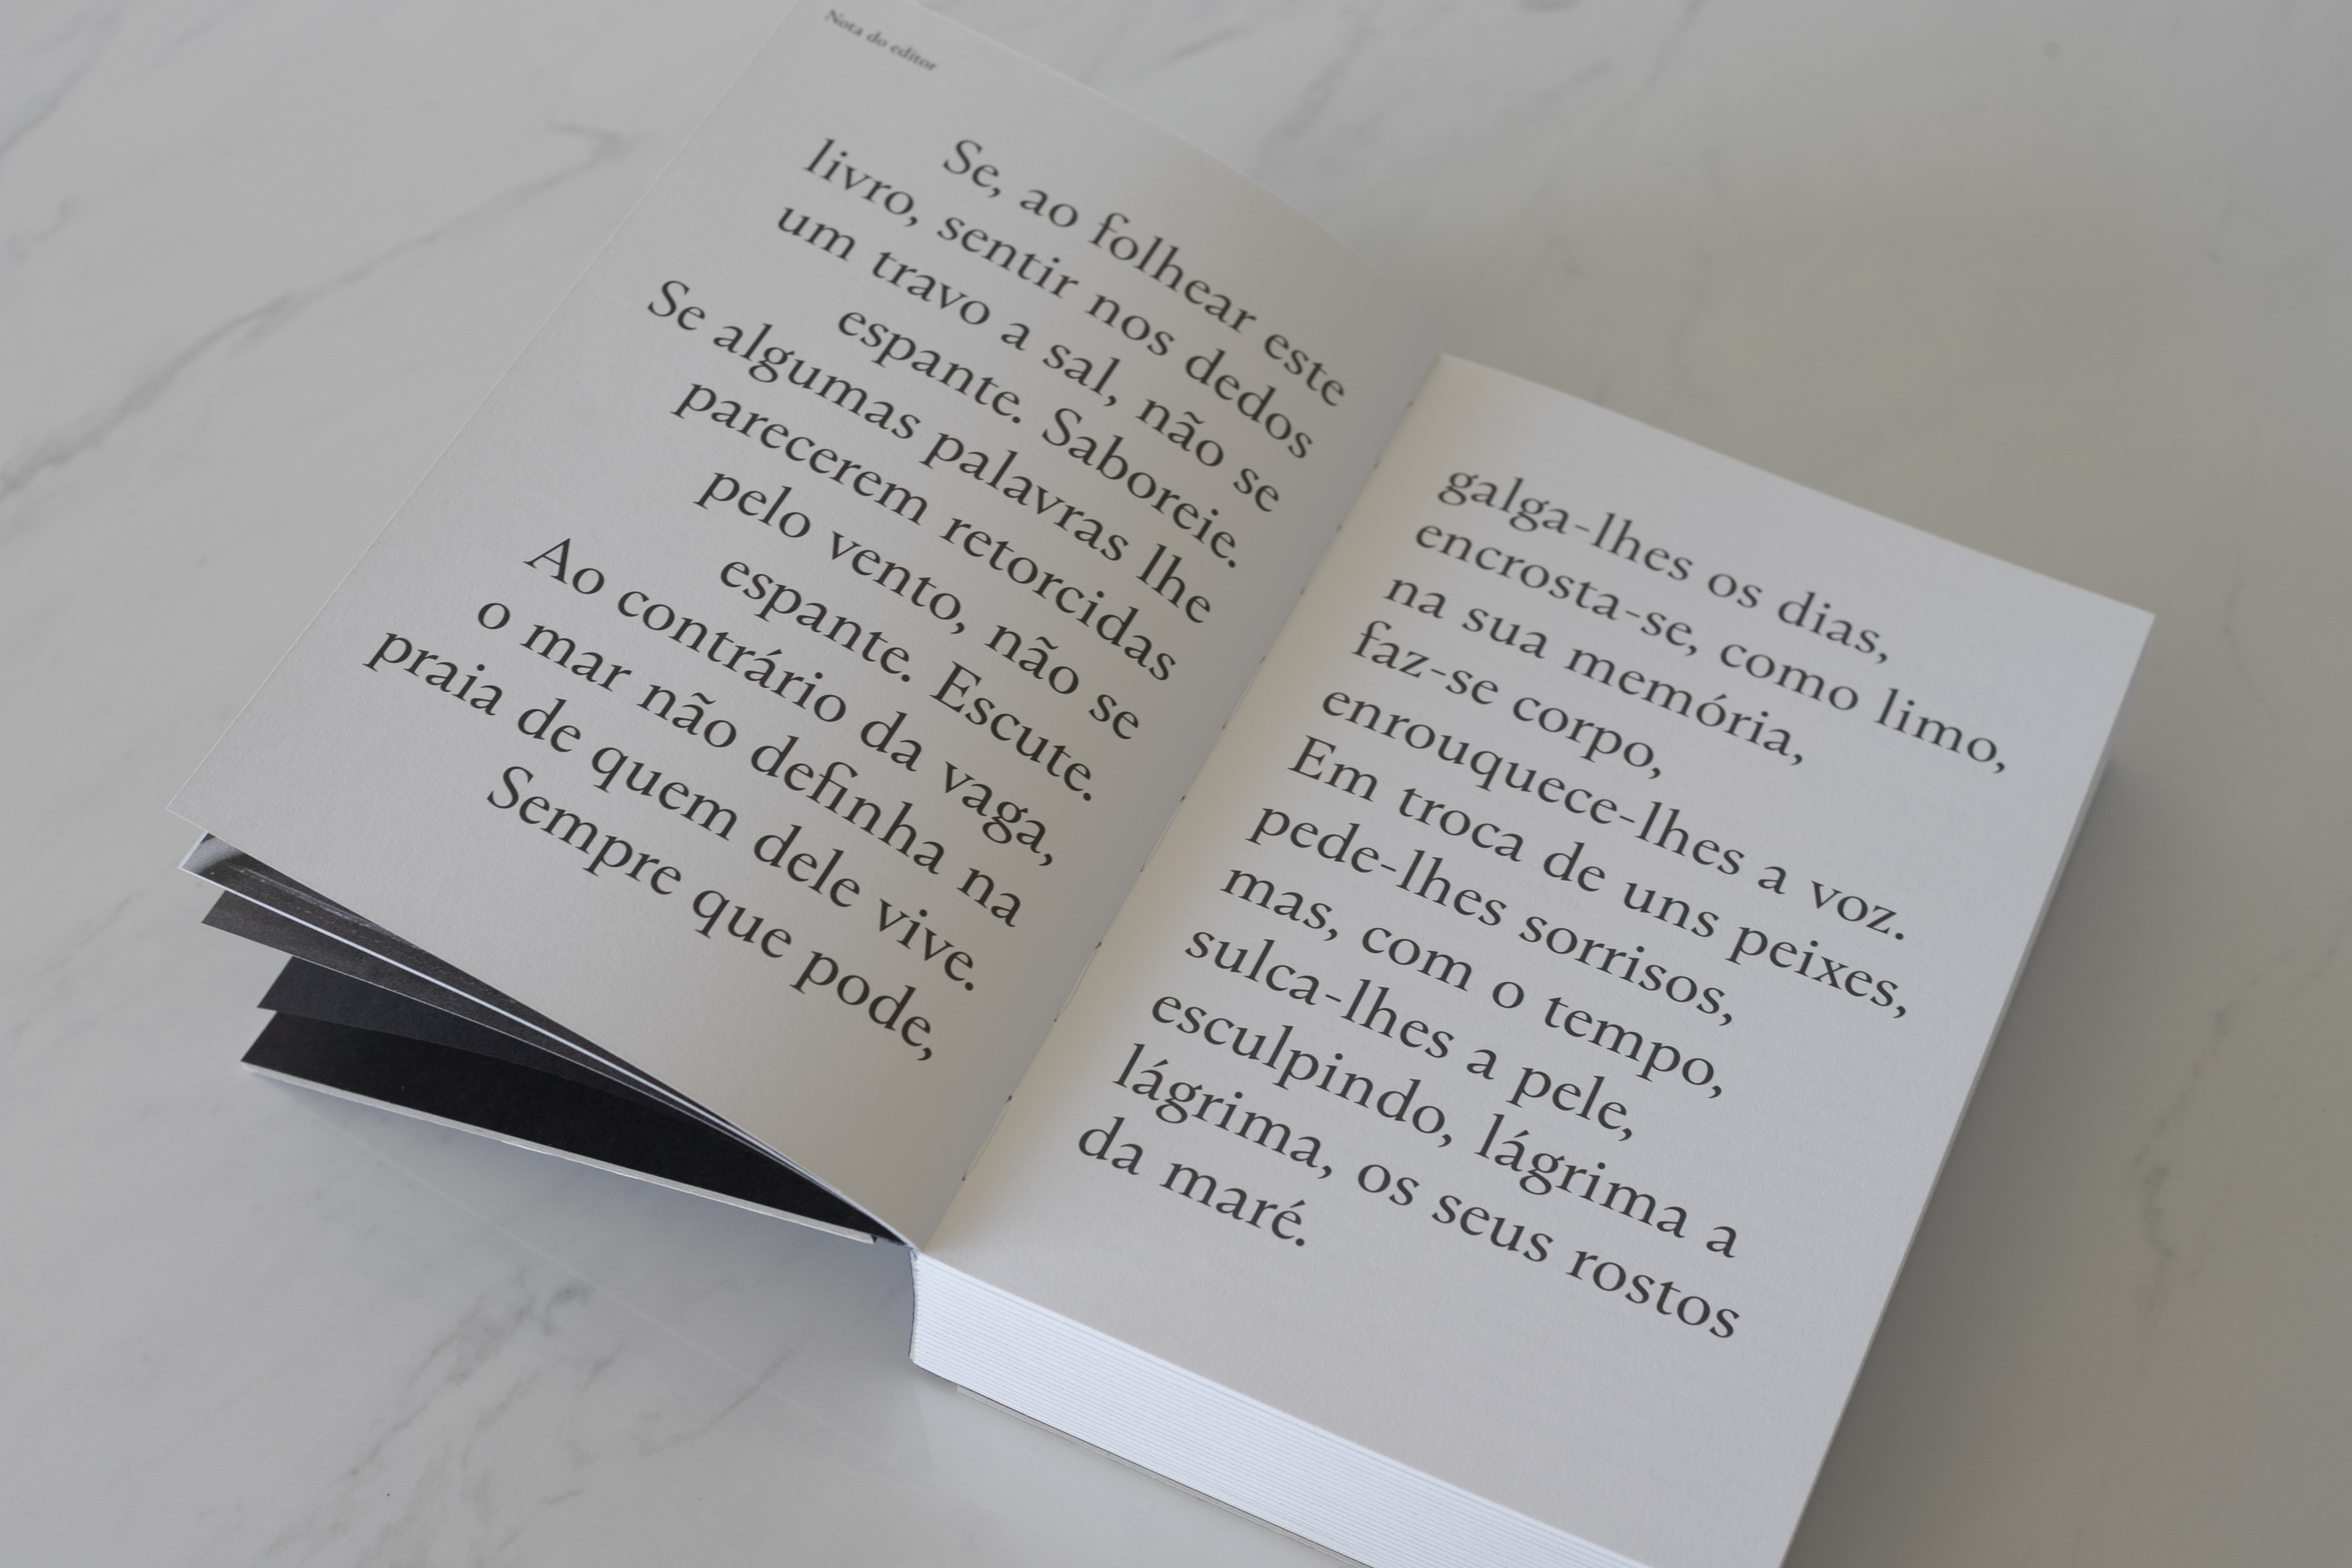 Nota do editor
Se, ao folhear este
livro, sentir nos dedos
um travo a sal, não se
espante. Saboreie.
Se algumas palavras lhe
parecerem retorcidas
pelo vento, não se
espante. Escute.
Ao contrário da vaga,
o mar não definha na
praia de quem dele vive.
Sempre que pode,
galga-lhes os dias,
encrosta-se, como limo,
na sua memória,
faz-se corpo,
enrouquece-lhes a voz.
Em troca de uns peixes,
pede-lhes sorrisos,
mas, com o tempo,
sulca-lhes a pele,
esculpindo, lágrima a
lágrima, os seus rostos
da maré.